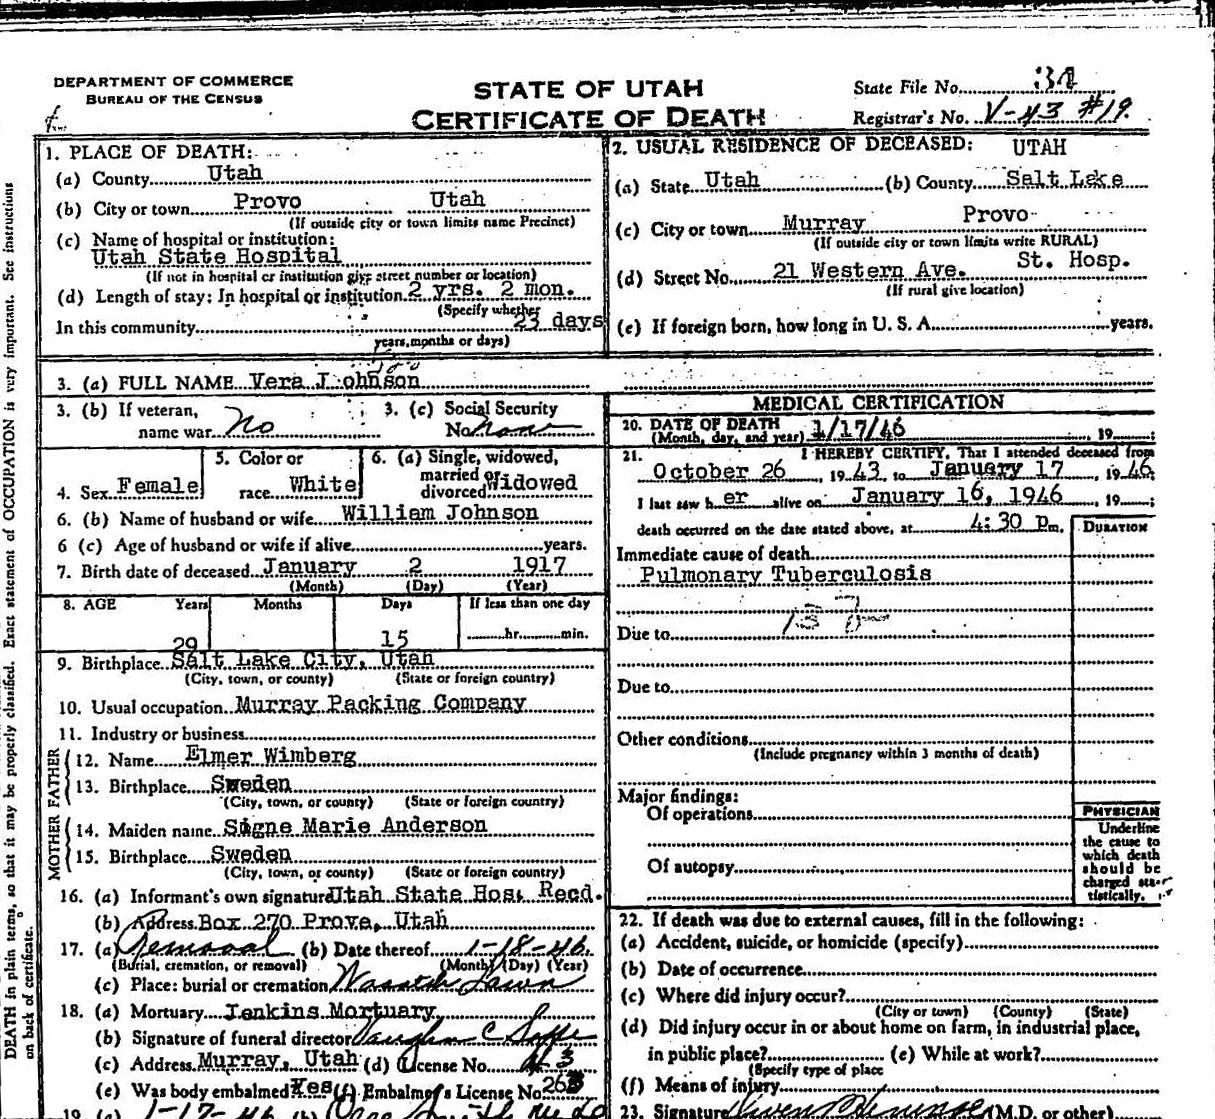 DEPARTMENT OF COMMERCE
BUREAU OF THE CENSUS
STATE OF UTAH
CERTIFICATE OF DEATH
State File No.
Registrar's No. V-43 #19
1. PLACE OF DEATH:
(a) County Utah
(b) City or town Provo Utah
(If outside city or town limits name Precinct)
(c) Name of hospital or institution:
Utah State Hospital
(If not in hospital or institution give street number or location)
(d) Length of stay: In hospital or institution 2 yrs. 2 mon.
(Specify whether
In this community 23 days
years, months or days)
2. USUAL RESIDENCE OF DECEASED: UTAH
(a) State Utah (b) County Salt Lake
(c) City or town Murray Provo
(If outside city or town limits write RURAL)
(d) Street No. 21 Western Ave. St. Hosp.
(If rural give location)
(e) If foreign born, how long in U. S. A. years.
3. (a) FULL NAME Vera Johnson
3. (b) If veteran,
name war No
3. (c) Social Security
No. None
4. Sex Female
5. Color or
race White
6. (a) Single, widowed,
married or
divorced Widowed
6. (b) Name of husband or wife William Johnson
6 (c) Age of husband or wife if alive years.
7. Birth date of deceased January 2 1917
(Month) (Day) (Year)
8. AGE Years Months Days If less than one day
29 15 hr. min.
9. Birthplace Salt Lake City, Utah
(City, town, or county) (State or foreign country)
10. Usual occupation Murray Packing Company
11. Industry or business
FATHER
12. Name Elmer Wimberg
13. Birthplace Sweden
(City, town, or county) (State or foreign country)
MOTHER
14. Maiden name Signe Marie Anderson
15. Birthplace Sweden
(City, town, or county) (State or foreign country)
16. (a) Informant's own signature Utah State Hos. Recd.
(b) Address Box 270 Provo, Utah
17. (a) Removal (b) Date thereof 1-18-46.
(Burial, cremation, or removal) (Month) (Day) (Year)
(c) Place: burial or cremation Wasatch Lawn
18. (a) Mortuary Jenkins Mortuary
(b) Signature of funeral director Vaughn C
(c) Address Murray, Utah (d) License No.
(e) Was body embalmed Yes (f) Embalmer's License No. 263
19. (a) 1-17-46 (b)
MEDICAL CERTIFICATION
20. DATE OF DEATH
(Month, day, and year) 1/17/46 , 19 ;
21. I HEREBY CERTIFY, That I attended deceased from
October 26 , 19 43, to January 17 , 19 46,
I last saw h er alive on January 16, 1946 , 19 ;
death occurred on the date stated above, at 4:30 Pm.
DURATION
Immediate cause of death
Pulmonary Tuberculosis
Due to
Due to
Other conditions
(Include pregnancy within 3 months of death)
Major findings:
Of operations
Of autopsy
PHYSICIAN
Underline
the cause to
which death
should be
charged sta-
tistically.
22. If death was due to external causes, fill in the following:
(a) Accident, suicide, or homicide (specify)
(b) Date of occurrence
(c) Where did injury occur?
(City or town) (County) (State)
(d) Did injury occur in or about home on farm, in industrial place,
in public place? (e) While at work?
(Specify type of place
(f) Means of injury
23. Signature (M.D. or other)
DEATH in plain terms, so that it may be properly classified. Exact statement of OCCUPATION is very important. See instructions
on back of certificate.